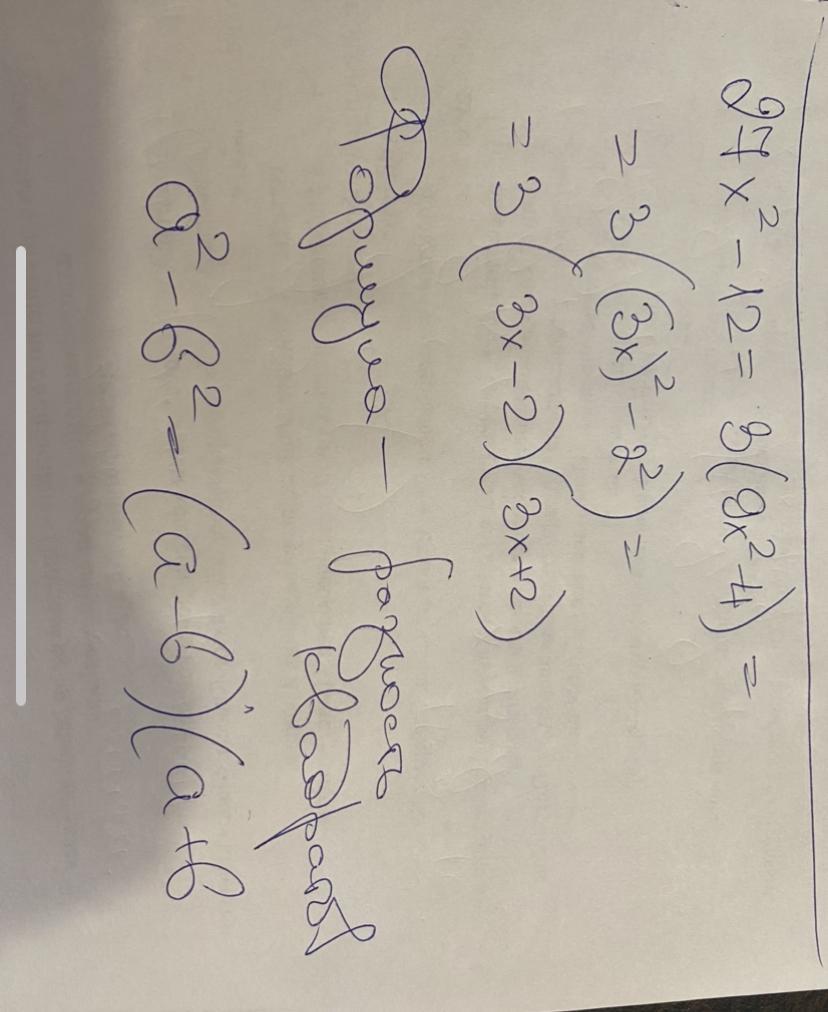 27x² - 12 = 3(9x² - 4) =
= 3((3x)² - 2²) =
= 3(3x - 2)(3x + 2)
Формула — разность
квадратов
a² - b² = (a - b)(a + b